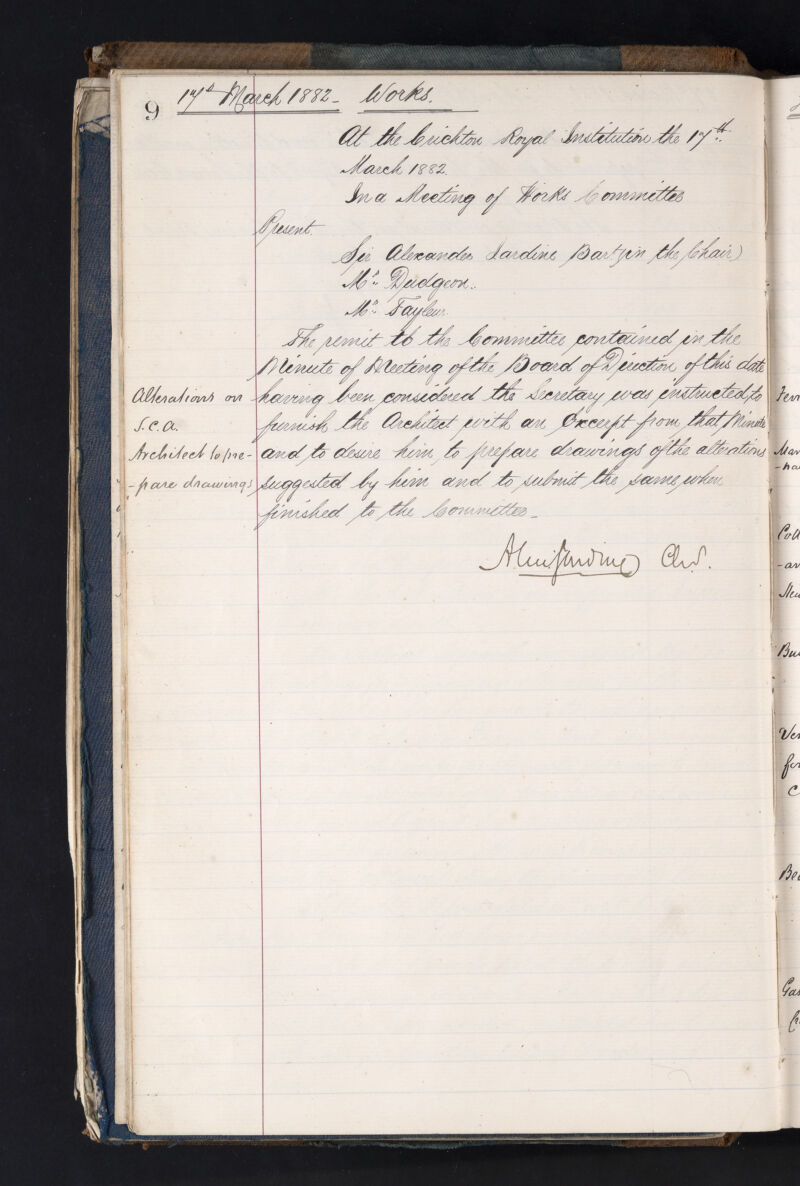 9
17th March 1882 - Works.
At the Crichton Royal Institution the 17th
March 1882.
In a Meeting of Works Committee
Present.
Sir Alexander Jardine Bart (in the Chair)
Mr. Dudgeon.
Mr. Tayleur.
The remit to the Committee contained in the
Minute of Meeting of the Board of Direction of this date
Alterations on
having been considered the Secretary was instructed to
S.C.A.
furnish the Architect with an Excerpt from that Minute
Architect to pre-
and to desire him to prepare drawings of the alterations
-pare drawings
suggested by him and to submit the same when
finished to the Committee -
Jardine Chn.
Mar
Bu
Ver
for
C
Be
Gas